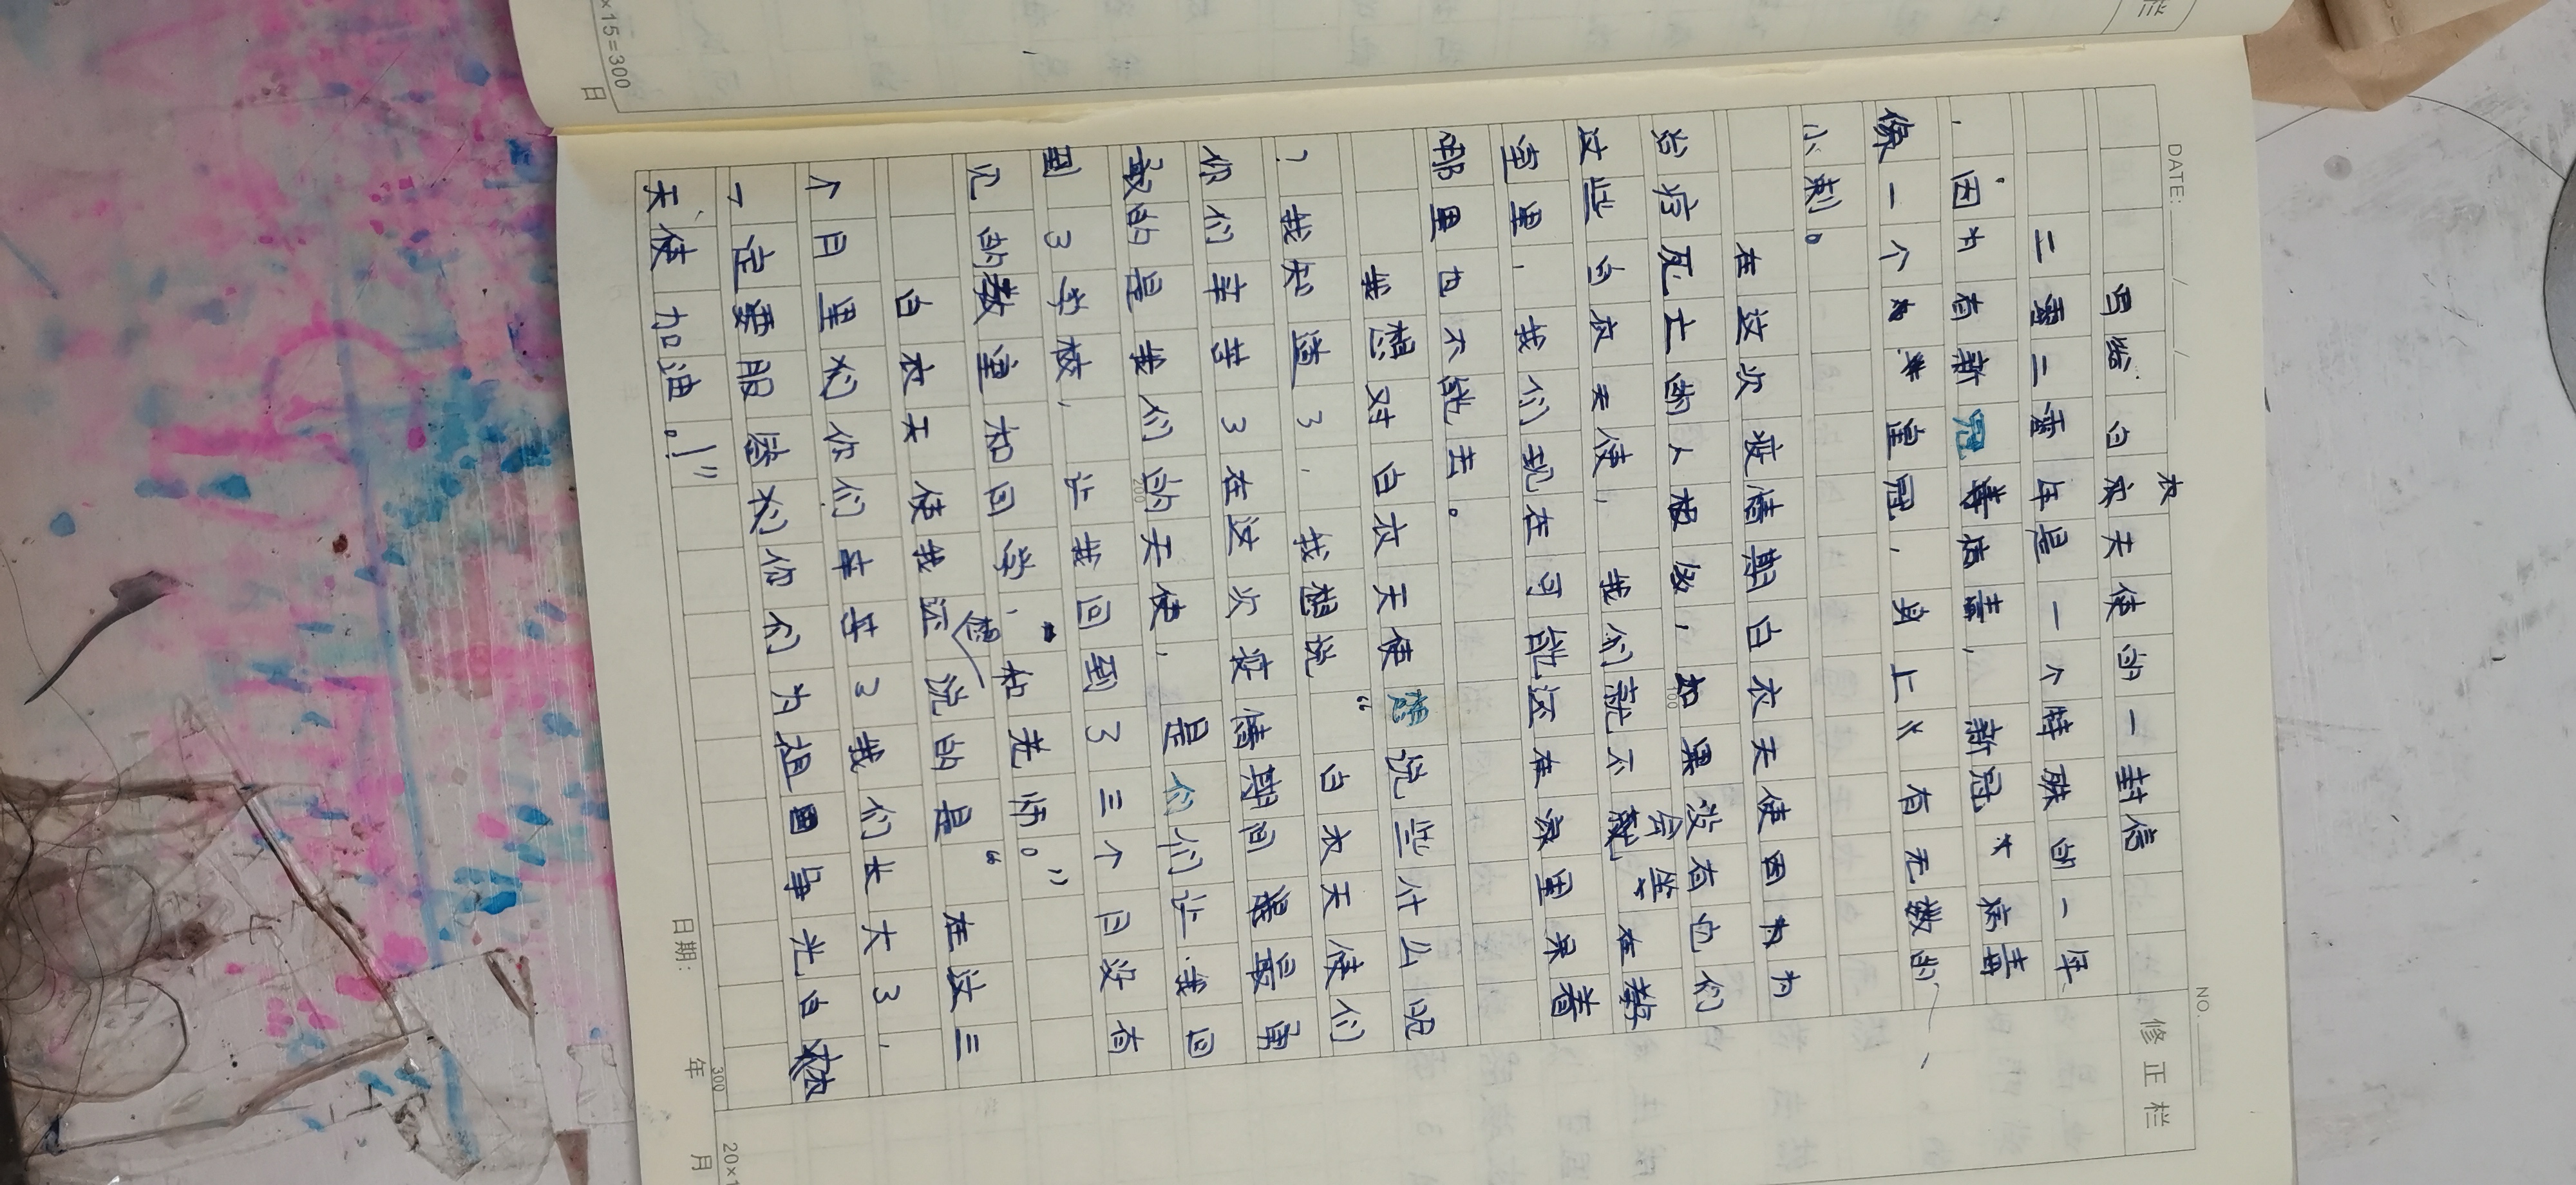 ×15=300
日
DATE:
NO.
修正栏
写给白衣天使的一封信
二零二零年是一个特殊的一年
,因为有新冠毒病毒,新冠病毒
像一个皇冠,身上有无数的
小刺。
在这次疫情期白衣天使因为
治疗死亡的人很多,如果没有他们
过些白衣天使,我们就不会坐在教
室里,我们现在可能还在家里呆着
哪里也不能去。
我想对白衣天使想说些什么呢
?我知道了,我想说“白衣天使们
你们辛苦了在这次疫情期间最要勇
敢的是我们的天使,是们们让我回
到了学校,让我回到了三个月没有
见的教室和同学,和老师。”
白衣天使我还想说的是“在这三
个月里我们你们辛苦了我们长大了,
一定要报答我们你们为祖国争光白衣
天使加油。!”
日期: 年 月
100
200
300
20×1